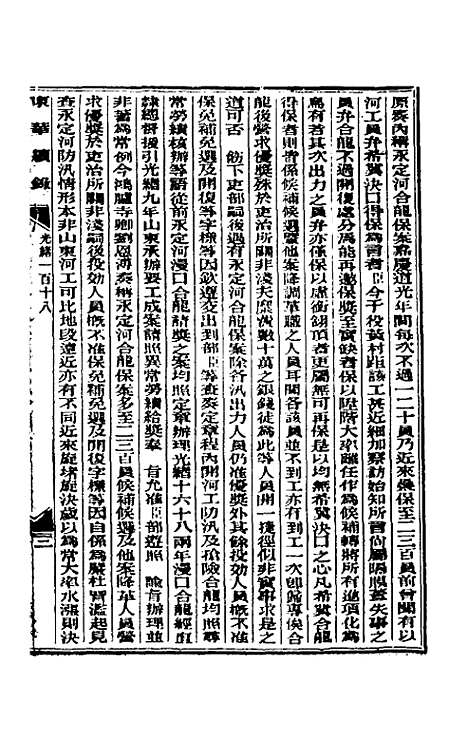 原奏內稱永定河合龍保案嘉慶道光年間每次不過一二十員乃近來濫保至二三百員前曾聞有以
河工員弁希冀決口得保為言者臣今于役黃村距該工甚近細加察訪始知所言尚屬隔膜蓋失事之
員弁合龍不過開復處分焉能再邀保獎至實缺者保以陞階大率離任作為候補轉將所有進項化為
烏有者其次出力之員弁亦僅保以虛銜翎頂者更屬無可再保是以均無希冀決口之心凡希冀合龍
得保者則皆係候補候選暨他案降調革職之人員耳聞各該員並不到工亦有到工一次卽歸專俟合
龍後營求優獎殊於吏治所關非淺夫糜帑數十萬之銀錢徒為此等人員開一捷徑似非實事求是之
道可否 飭下吏部嗣後遇有永定河合龍保案除各汛出力人員仍准優獎外其餘投效人員槪不准
保免補免選及開復等字樣等因欽遵交出到部臣等查奏定章程內開河工防汛及搶險合龍均照尋
常勞績核辦等語從前永定河漫口合龍請獎之案均照定章辦理光緒十六十八兩年漫口合龍經直
隸總督援引光緒九年山東承辦要工成案請照異常勞績給獎奉 旨允准臣部遵照 諭旨辦理並
非著為常例今鴻臚寺卿劉恩溥奏稱永定河合龍保案多至二三百員候補候選及他案降革人員營
求優獎於吏治所關非淺嗣後投效人員槪不准保免補免選及開復字樣等因自係為嚴杜冒濫起見
查永定河防汛情形本非山東河工可比地段遠近亦有不同近來旋堵旋決歲以為常大率水漲則決
東華續錄
光緒一百十八
三